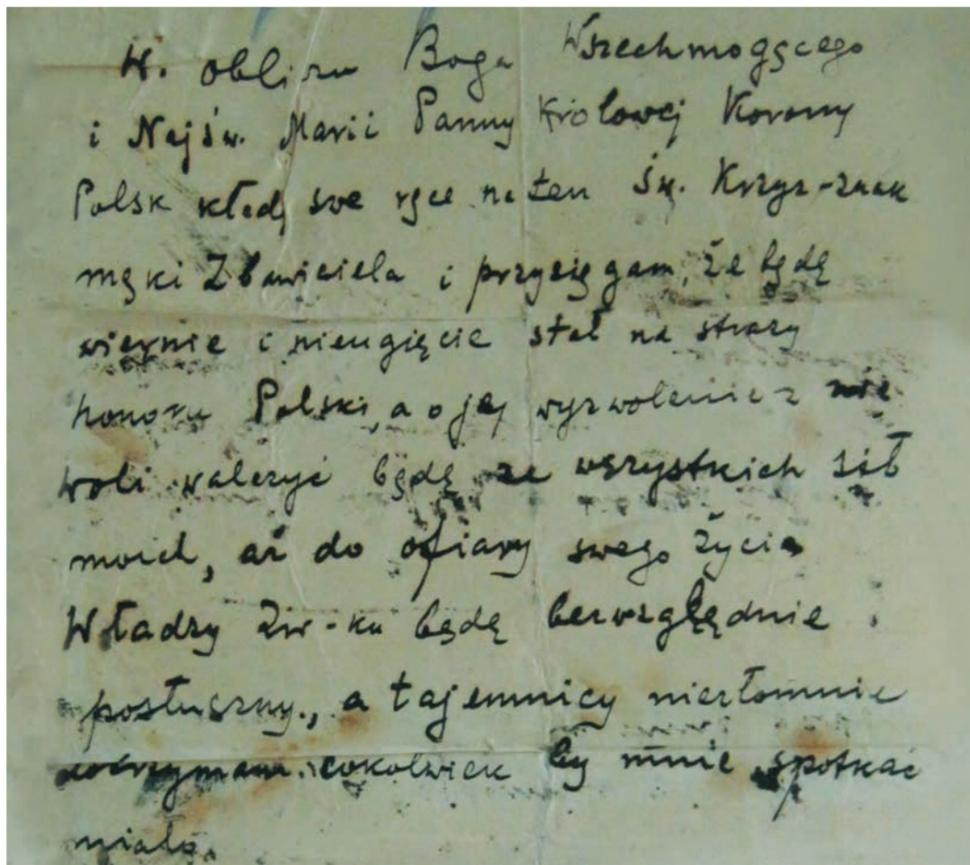 W. obliczu Boga Wszechmogącego
i Najśw. Marii Panny Królowej Korony
Polsk kładę swe ręce na ten św. Krzyż-znak
męki Zbawiciela i przysięgam, że będę
wiernie i nieugięcie stał na straży
honoru Polski, a o jej wyzwolenie z nie
woli walczyć będę ze wszystkich sił
moich, aż do ofiary swego życia
Władzy Zw-ku będę bezwzględnie
posłuszny., a tajemnicy niezłomnie
dotrzymam. cokolwiek by mnie spotkać
miało.